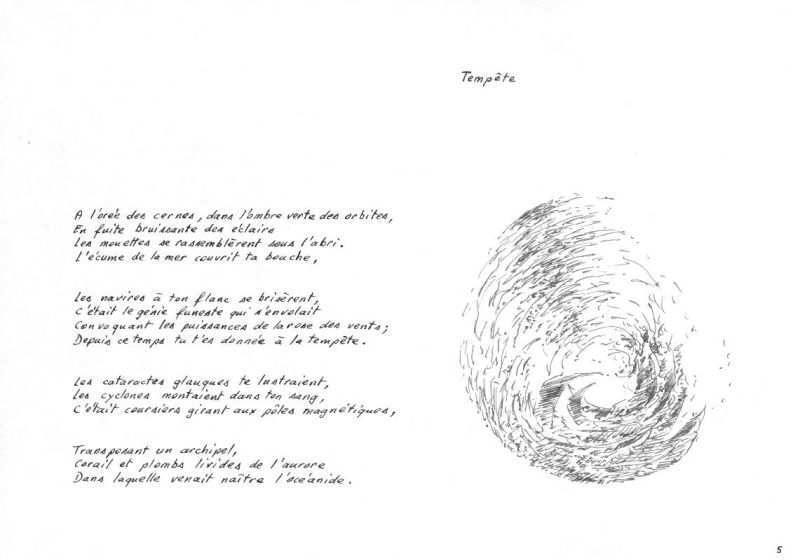 Tempête
A l'orée des cernes, dans l'ombre verte des orbites,
En fuite bruissante des éclairs
Les mouettes se rassemblèrent sous l'abri.
L'écume de la mer couvrit ta bouche,
Les navires à ton flanc se brisèrent,
C'était le génie funeste qui s'envolait
Convoquant les puissances de la rose des vents;
Depuis ce temps tu t'es donnée à la tempête.
Les cataractes glauques te lustraient,
Les cyclones montaient dans ton sang,
C'était coursiers girant aux pôles magnétiques,
Transposant un archipel,
Corail et plombs livides de l'aurore
Dans laquelle venait naître l'océanide.
5